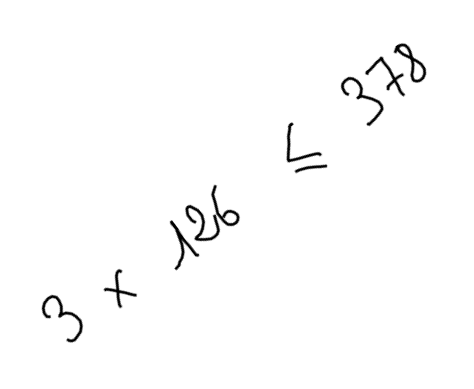 3 × 126 ≤ 378